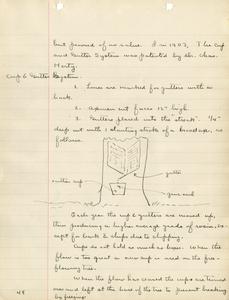 but proved of no value. In 1903, The cup
and Gutter System was patented by Dr. Chas.
Herty.
Cup & Gutter System.
1. Trees are marked for gutters with a
hack.
2. Apron cut faces 12" high.
3. Gutters placed into the streak. 1/4"
deep cut with 1 slanting stroke of a broad axe, as
follows.
gutter
gutter cup
Each year the cup & gutters are moved up,
thus producing a higher average grade of rosin,
kept for bark & chips due to chipping.
Cups do not hold as much as boxes. When the
flow is too great a new cup is used on the fre-
flowing tree.
When the flow has ceased the cups are turned
over and left at the base of the tree to prevent breaking
by freezing.
48